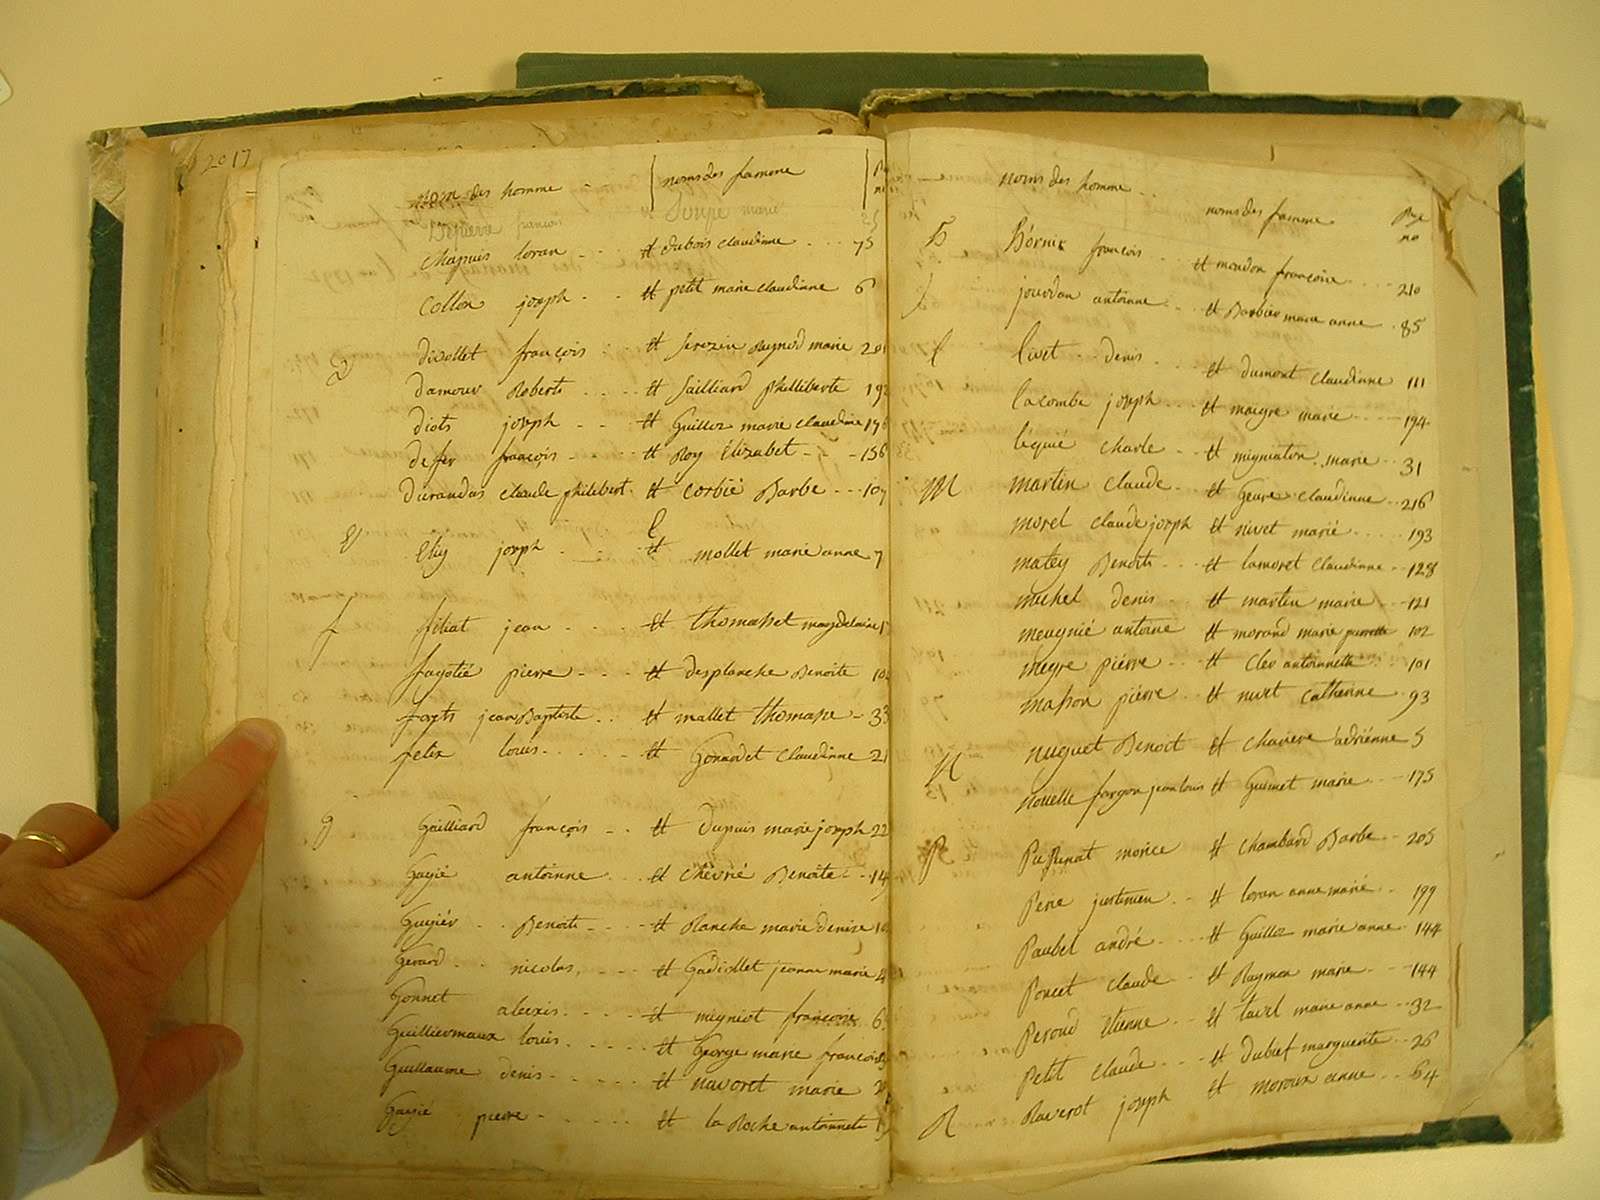 2017
nom des homme noms des famme
Depierre francois et Soupe marie 25
chapuis loran et dubois claudinne 75
Collon joseph et petit marie claudinne 6
D divollet françois et serozin Reymod marie 20
damour Roberte et Sailliard philliberte 192
diots joseph et Guilloz marie claudine 196
defer françois et Roy Élizabet 156
durandus claude philibert et corbié Barbe 107
E
Eley joseph et mollet marie anne 7
f filiat jean et thomasset magdelaine
fayolié pierre et desplanche Benoite 10
jean Baptiste et mallet thomasse 33
felix louis et Gonnodet Claudinne 21
g Gailliard françois et dupuis marie joseph 22
Gayié antoinne et chevrié Benoite 14
Guyiér Benoite et Blanche marie denise 10
Gerard nicolas et Gadiollet jeanne marie
Gonnet alexis et migniot françoise 6
Guilliermaux louis et George marie françoise
Guillaume denis et navoret marie
Gayié pierre et la Roche antoinnete
noms des homme noms des famme Page no
h hornie françois et moudon françoise 210
j jourdan antoinne et Barbier marie anne 85
l livet denis et dumont Claudinne 111
lacombe joseph et maigre marie 194
lequié charle et migniaton marie 31
M martin claude et Geure claudinne 216
morel claude joseph et nivet marié 193
matey Benoite et lamoret claudinne 128
michel denis et martin marie 121
meugnié antoine et morand marie pierrette 102
megre piérre et cler antoinnette 101
masson piérre et nivet catherine 93
N nuguet Benoit et chariere adriénne 5
nouelle fargon jean louis et Guimet marie 175
P morice et chambard Barbe 205
Perie justinien et loran anne marié 199
Paubel andré et Guilloz marie anne 144
Poncet claude et Raymon marie 144
Peroud etienne et tavel marie anne 32
Petit claude et dubief marguerite 26
R Raverot joseph et moroux anne 64